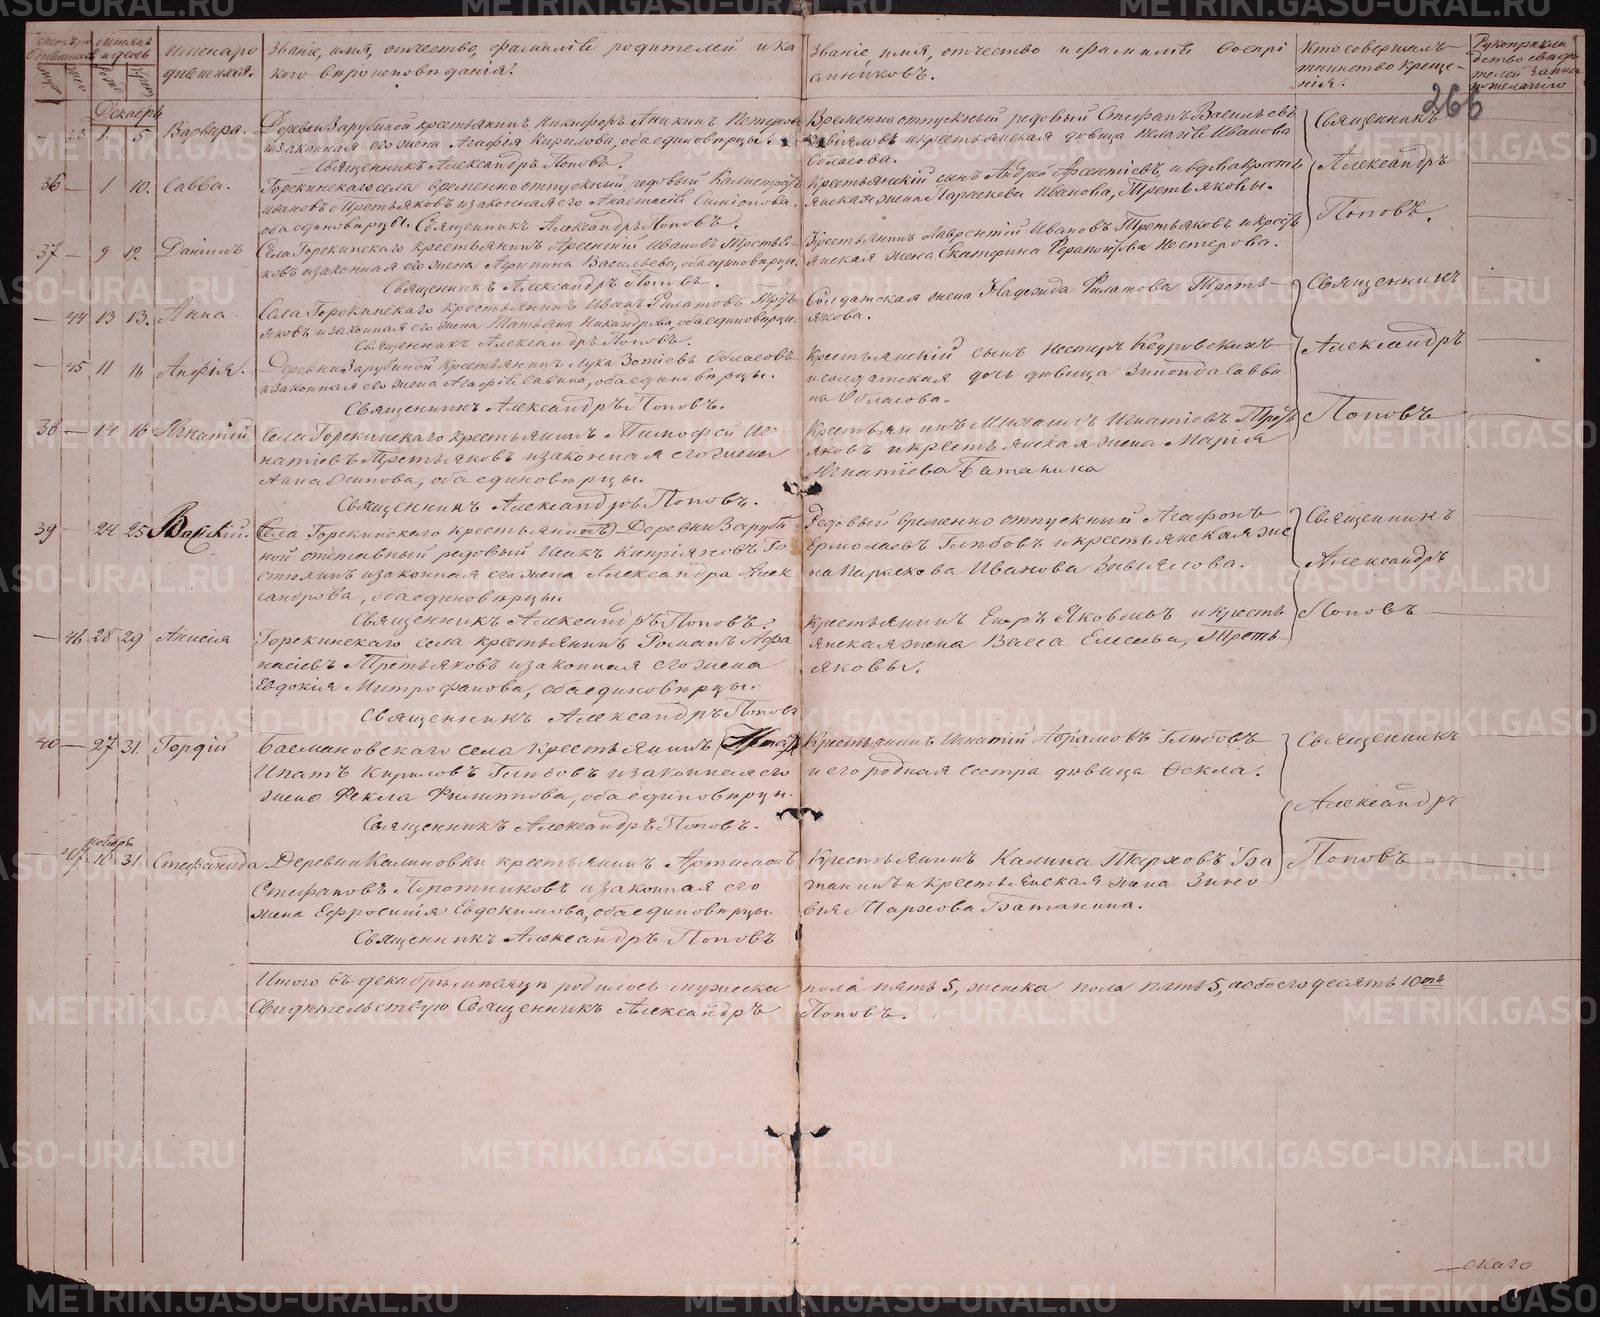 Имена ро
дившихся.
Званіе, имя, отчество, фамилія родителей и ка
кого вѣроисповѣданія?
Званіе, имя, отчество и фамилія воспрі
емниковъ.
Кто совершалъ
таинство креще-
нія?
266
Декабрь
1. 5 Варвара.
Деревни Зарубиной крестьянинъ Никифоръ Аникинъ Нестеровъ
и законная его жена Агафія Кирилова, оба единовѣрцы.
Священникъ Александръ Поповъ.
Временно отпускный рядовый Стефанъ Васильевъ
и крестьянская дѣвица Иванова
36 — 1 10. Савва.
Горскинскаго села временно отпускный рядовый Калистратъ
Ивановъ Третьяковъ и законная его Анастасія Симіонова,
оба единовѣрцы. Священникъ Александръ Поповъ.
Крестьянскій сынъ Андрей Арсентіевъ, и
жена Параскева Иванова, Третьяковы.
Священникъ
Александръ
Поповъ.
37 — 9 12. Даніилъ
Села Горскинскаго крестьянинъ Арсентій Ивановъ Третья-
ковъ и законная его жена Акилина Васильева, оба единовѣрцы.
Священникъ Александръ Поповъ.
Крестьянинъ Лаврентій Ивановъ Третьяковъ и кресть
янская жена Екатерина Ферапонтова Нестерова.
— 44 13 13. Анна.
Села Горскинскаго крестьянинъ Иванъ Филатовъ Треть
яковъ и законная его жена Татьяна Никандрова, оба единовѣрцы.
Священникъ Александръ Поповъ.
Солдатская жена Надежда Филатова Треть-
якова.
— 45 11 16 Анфія.
Деревни Зарубиной крестьянинъ Лука Зотіевъ Обласовъ
и законная его жена Агафія Савина, оба единовѣрцы.
Священникъ Александръ Поповъ.
Крестьянскій сынъ Несторъ Кедровскихъ
и солдатская дочь дѣвица Зинонида Савви
на Обласова.
Священникъ
Александръ
Поповъ
38 — 14 16 Игнатій
Села Горскинскаго крестьянинъ Тимофей Иг
натіевъ Третьяковъ и законная его жена
Анна Осипова, оба единовѣрцы.
Священникъ Александръ Поповъ.
Крестьянинъ Михаилъ Игнатіевъ Треть
яковъ и крестьянская жена Марія
Игнатіева Батанина
39 — 24 25 Василій.
Села Горскинскаго крестьянинъ Деревни Заруби
ной отставный рядовый Исакъ Кипріяновъ Го
стюхинъ и законная его жена Александра Алек
сандрова, оба единовѣрцы.
Священникъ Александръ Поповъ.
Рядовый временно отпускный Агафонъ
Ермолаевъ Глѣбовъ и крестьянская же
на Параскева Иванова Завьялова.
Священникъ
Александръ
Поповъ
— 46 28 29 Анисія
Горскинскаго села крестьянинъ Романъ Афа
насіевъ Третьяковъ и законная его жена
Евдокія Митрофанова, оба единовѣрцы.
Священникъ Александръ Поповъ
Крестьянинъ Егоръ Яковлевъ и кресть
янская жена Васса Елесева, Треть
яковы.
40 — 27 31. Гордій
Басмановскаго села крестьянинъ
Ипатъ Кириловъ Глѣбовъ и законная его
жена Фекла Филиппова, оба единовѣрцы.
Священникъ Александръ Поповъ.
Крестьянинъ Игнатій Абрамовъ Глѣбовъ
и его родная сестра дѣвица Фекла.
Священникъ
Александръ
Поповъ
ноябрь
— 47 16 31. Стефанида
Деревни Калиновки крестьянинъ Артамонъ
Стефановъ Плотниковъ и законная его
жена Ефросинія Евдокимова, оба единовѣрцы.
Священникъ Александръ Поповъ
Крестьянинъ Калина Марковъ Ба
танинъ и крестьянская жена Зино
вія Маркова Батанина.
Итого въ декабрѣ мѣсяцѣ родилось мужеска пола пять 5, женска пола пять 5, а обоего десять 10ть
Свидѣтельствую Священникъ Александръ Поповъ.
—скаго
METRIKI.GASO-URAL.RU